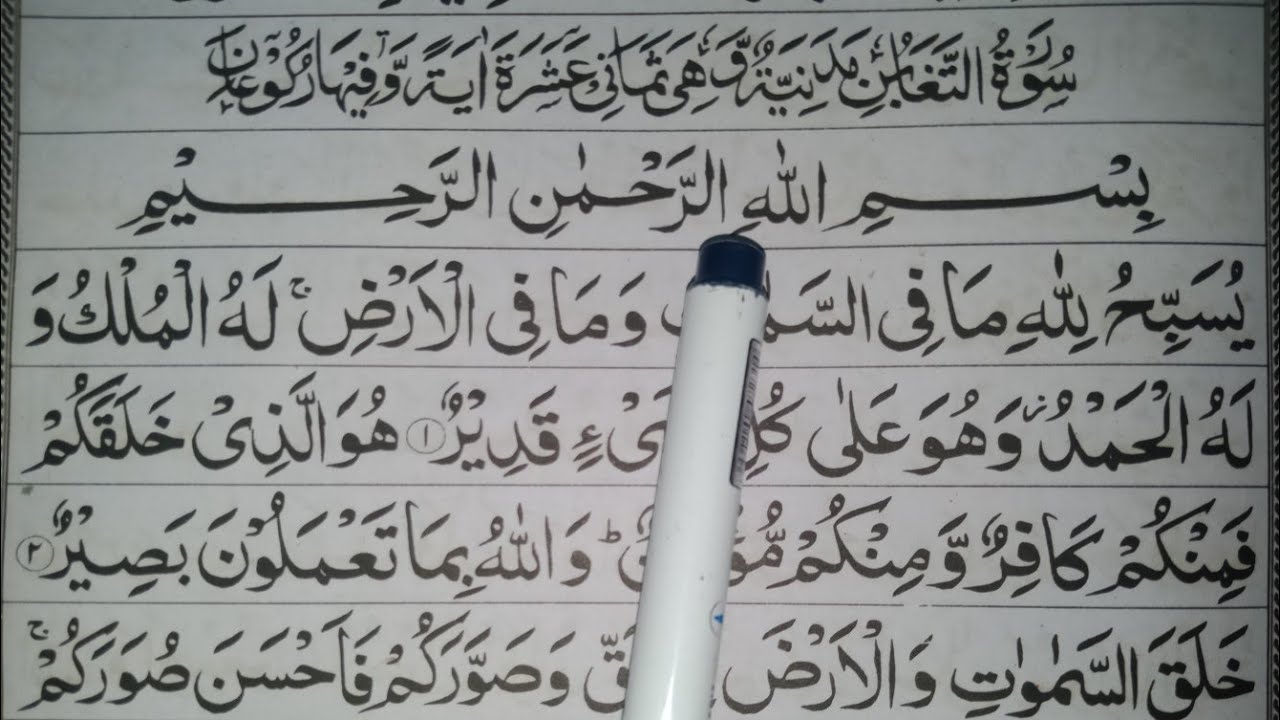 سُوْرَةُ التَّغَابُنِ مَدَنِيَّةٌ وَّهِىَ ثَمَانِىْ عَشَرَةَ اٰيَةً وَّفِيْهَا رُكُوْعَانِ
بِسْمِ اللّٰهِ الرَّحْمٰنِ الرَّحِيْمِ
يُسَبِّحُ لِلّٰهِ مَا فِى وَمَا فِى الْاَرْضِ ۚ لَهُ الْمُلْكُ وَ
لَهُ الْحَمْدُ ۖ وَهُوَ عَلٰى كُلِّ قَدِيْرٌ ۝۱ هُوَ الَّذِىْ خَلَقَكُمْ
فَمِنْكُمْ كَافِرٌ وَّمِنْكُمْ ؕ وَاللّٰهُ بِمَا تَعْمَلُوْنَ بَصِيْرٌ ۝۲
خَلَقَ السَّمٰوٰتِ وَالْاَرْضَ وَصَوَّرَكُمْ فَاَحْسَنَ صُوَرَكُمْ ۚ